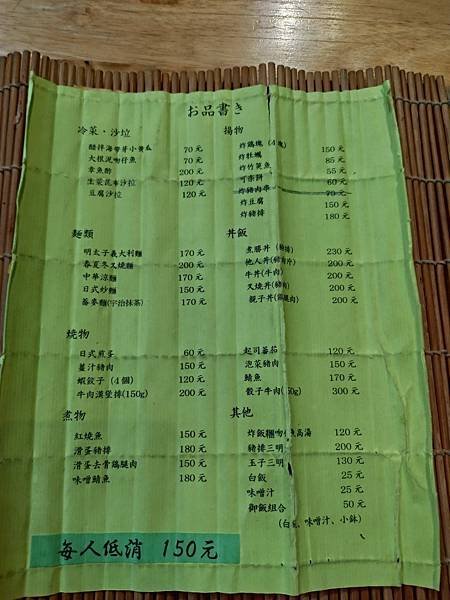 お品書き
冷菜·沙拉
醋拌海帶芽小黃瓜 70元
大根泥吻仔魚 70元
章魚酢 200元
生菜昆布沙拉 120元
豆腐沙拉 120元
揚物
炸雞塊 (4塊) 150元
炸牡蠣 85元
炸竹筴魚 55元
可樂餅 60元
炸豬肉串 70元
炸豆腐 150元
炸豬排 180元
麵類
明太子義大利麵 170元
春夏冬叉燒麵 200元
中華涼麵 170元
日式炒麵 150元
蕎麥麵(宇治抹茶) 170元
丼飯
煮勝丼 230元
他人丼 200元
牛丼(牛肉) 200元
叉燒丼 200元
親子丼 200元
燒物
日式煎蛋 60元
薑汁豬肉 150元
蝦餃子 (4個) 120元
牛肉漢堡排(150g) 200元
起司蕃茄 120元
泡菜豬肉 150元
鯖魚 170元
骰子牛肉 300元
煮物
紅燒魚 150元
滑蛋豬排 180元
滑蛋去骨雞腿肉 150元
味噌鯖魚 180元
其他
炸飯糰 高湯 120元
豬排三明 200元
玉子三明 130元
白飯 25元
味噌汁 25元
御飯組合 50元
(白飯、味噌汁、小缽)
每人低消 150元